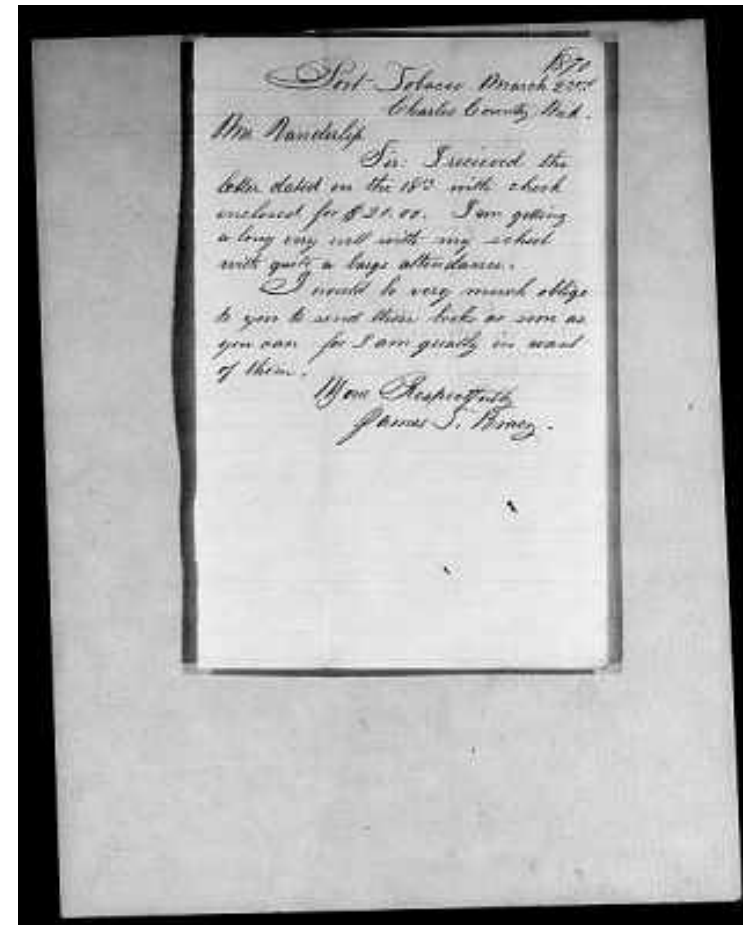 1870
Port Tobacco March 22nd
Charles County, Md.
Wm Vanderlip
Sir: I recieved the
letter dated on the 18th with check
enclosed for $20.00. I am getting
a long very well with my school
with quite a large attendance.
I would be very much oblige
to you to send them books as soon as
you can for I am greatly in want
of them.
Your Respectfully
James T.